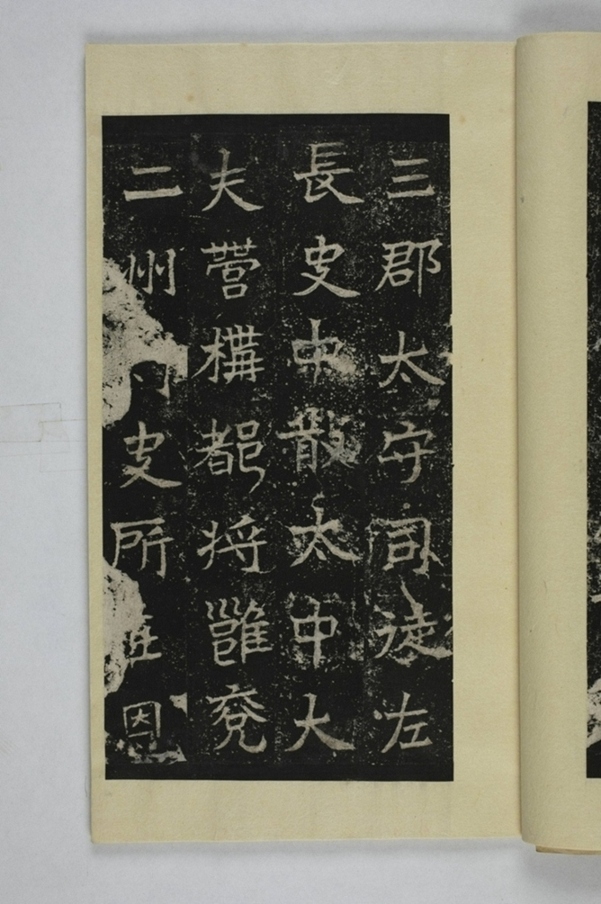 三郡太守司徒左
長史中散太中大
夫營構都將雝兗
二州史所在因